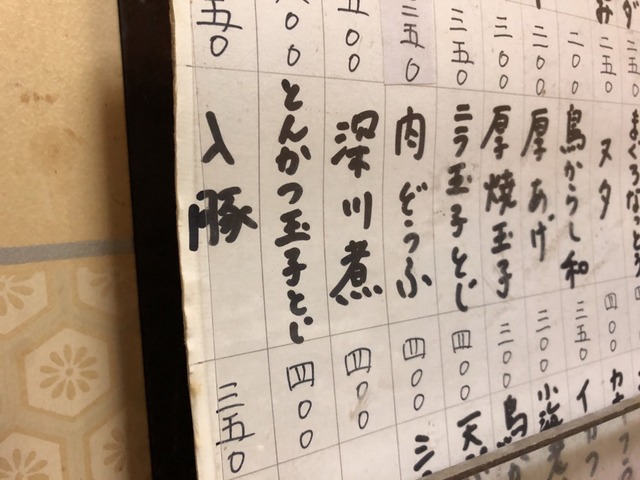 二五〇
二五〇
二〇〇
二〇〇
三〇〇
三五〇
三五〇
五〇〇
〇〇
五〇
ヌタ
四〇〇
鳥からし和
三五〇
厚あげ
二〇〇
厚焼玉子
三〇〇
ニラ玉子とじ
四〇〇
肉どうふ
四〇〇
深川煮
四〇〇
とんかつ玉子とじ
四〇〇
入豚
三五〇